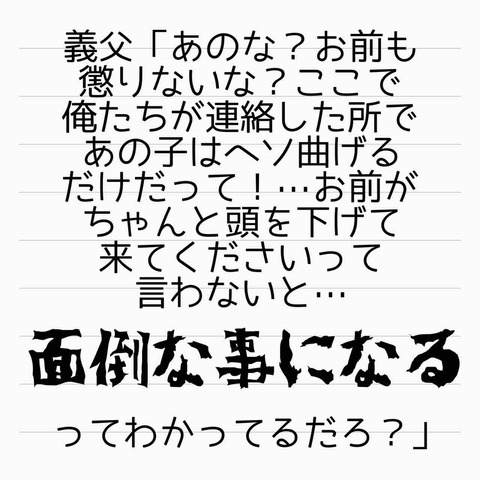 義父「あのな？お前も
懲りないな？ここで
俺たちが連絡した所で
あの子はヘソ曲げる
だけだって！…お前が
ちゃんと頭を下げて
来てくださいって
言わないと…
面倒な事になる
ってわかってるだろ？」